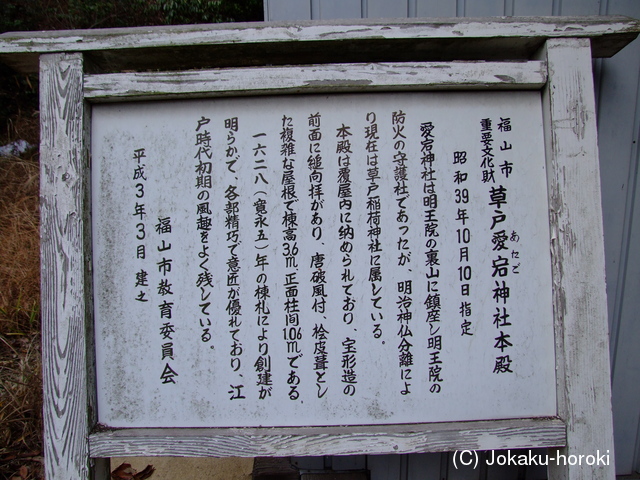 福山市
重要文化財
草戸愛宕神社本殿
あたご
昭和39年10月10日指定
愛宕神社は明王院の裏山に鎮座し明王院の
防火の守護社であったが、明治神仏分離によ
り現在は草戸稲荷神社に属している。
本殿は覆屋内に納められており、宝形造の
前面に縋向拝があり、唐破風付、桧皮葺とし
た複雑な屋根で棟高3.6m.正面柱間1.06mである.
一六二八(寛永五)年の棟札により創建が
明らかで、各部精巧で意匠が優れており、江
戸時代初期の風趣をよく残している。
平成3年3月 建之
福山市教育委員会
(C) Jokaku-horoki